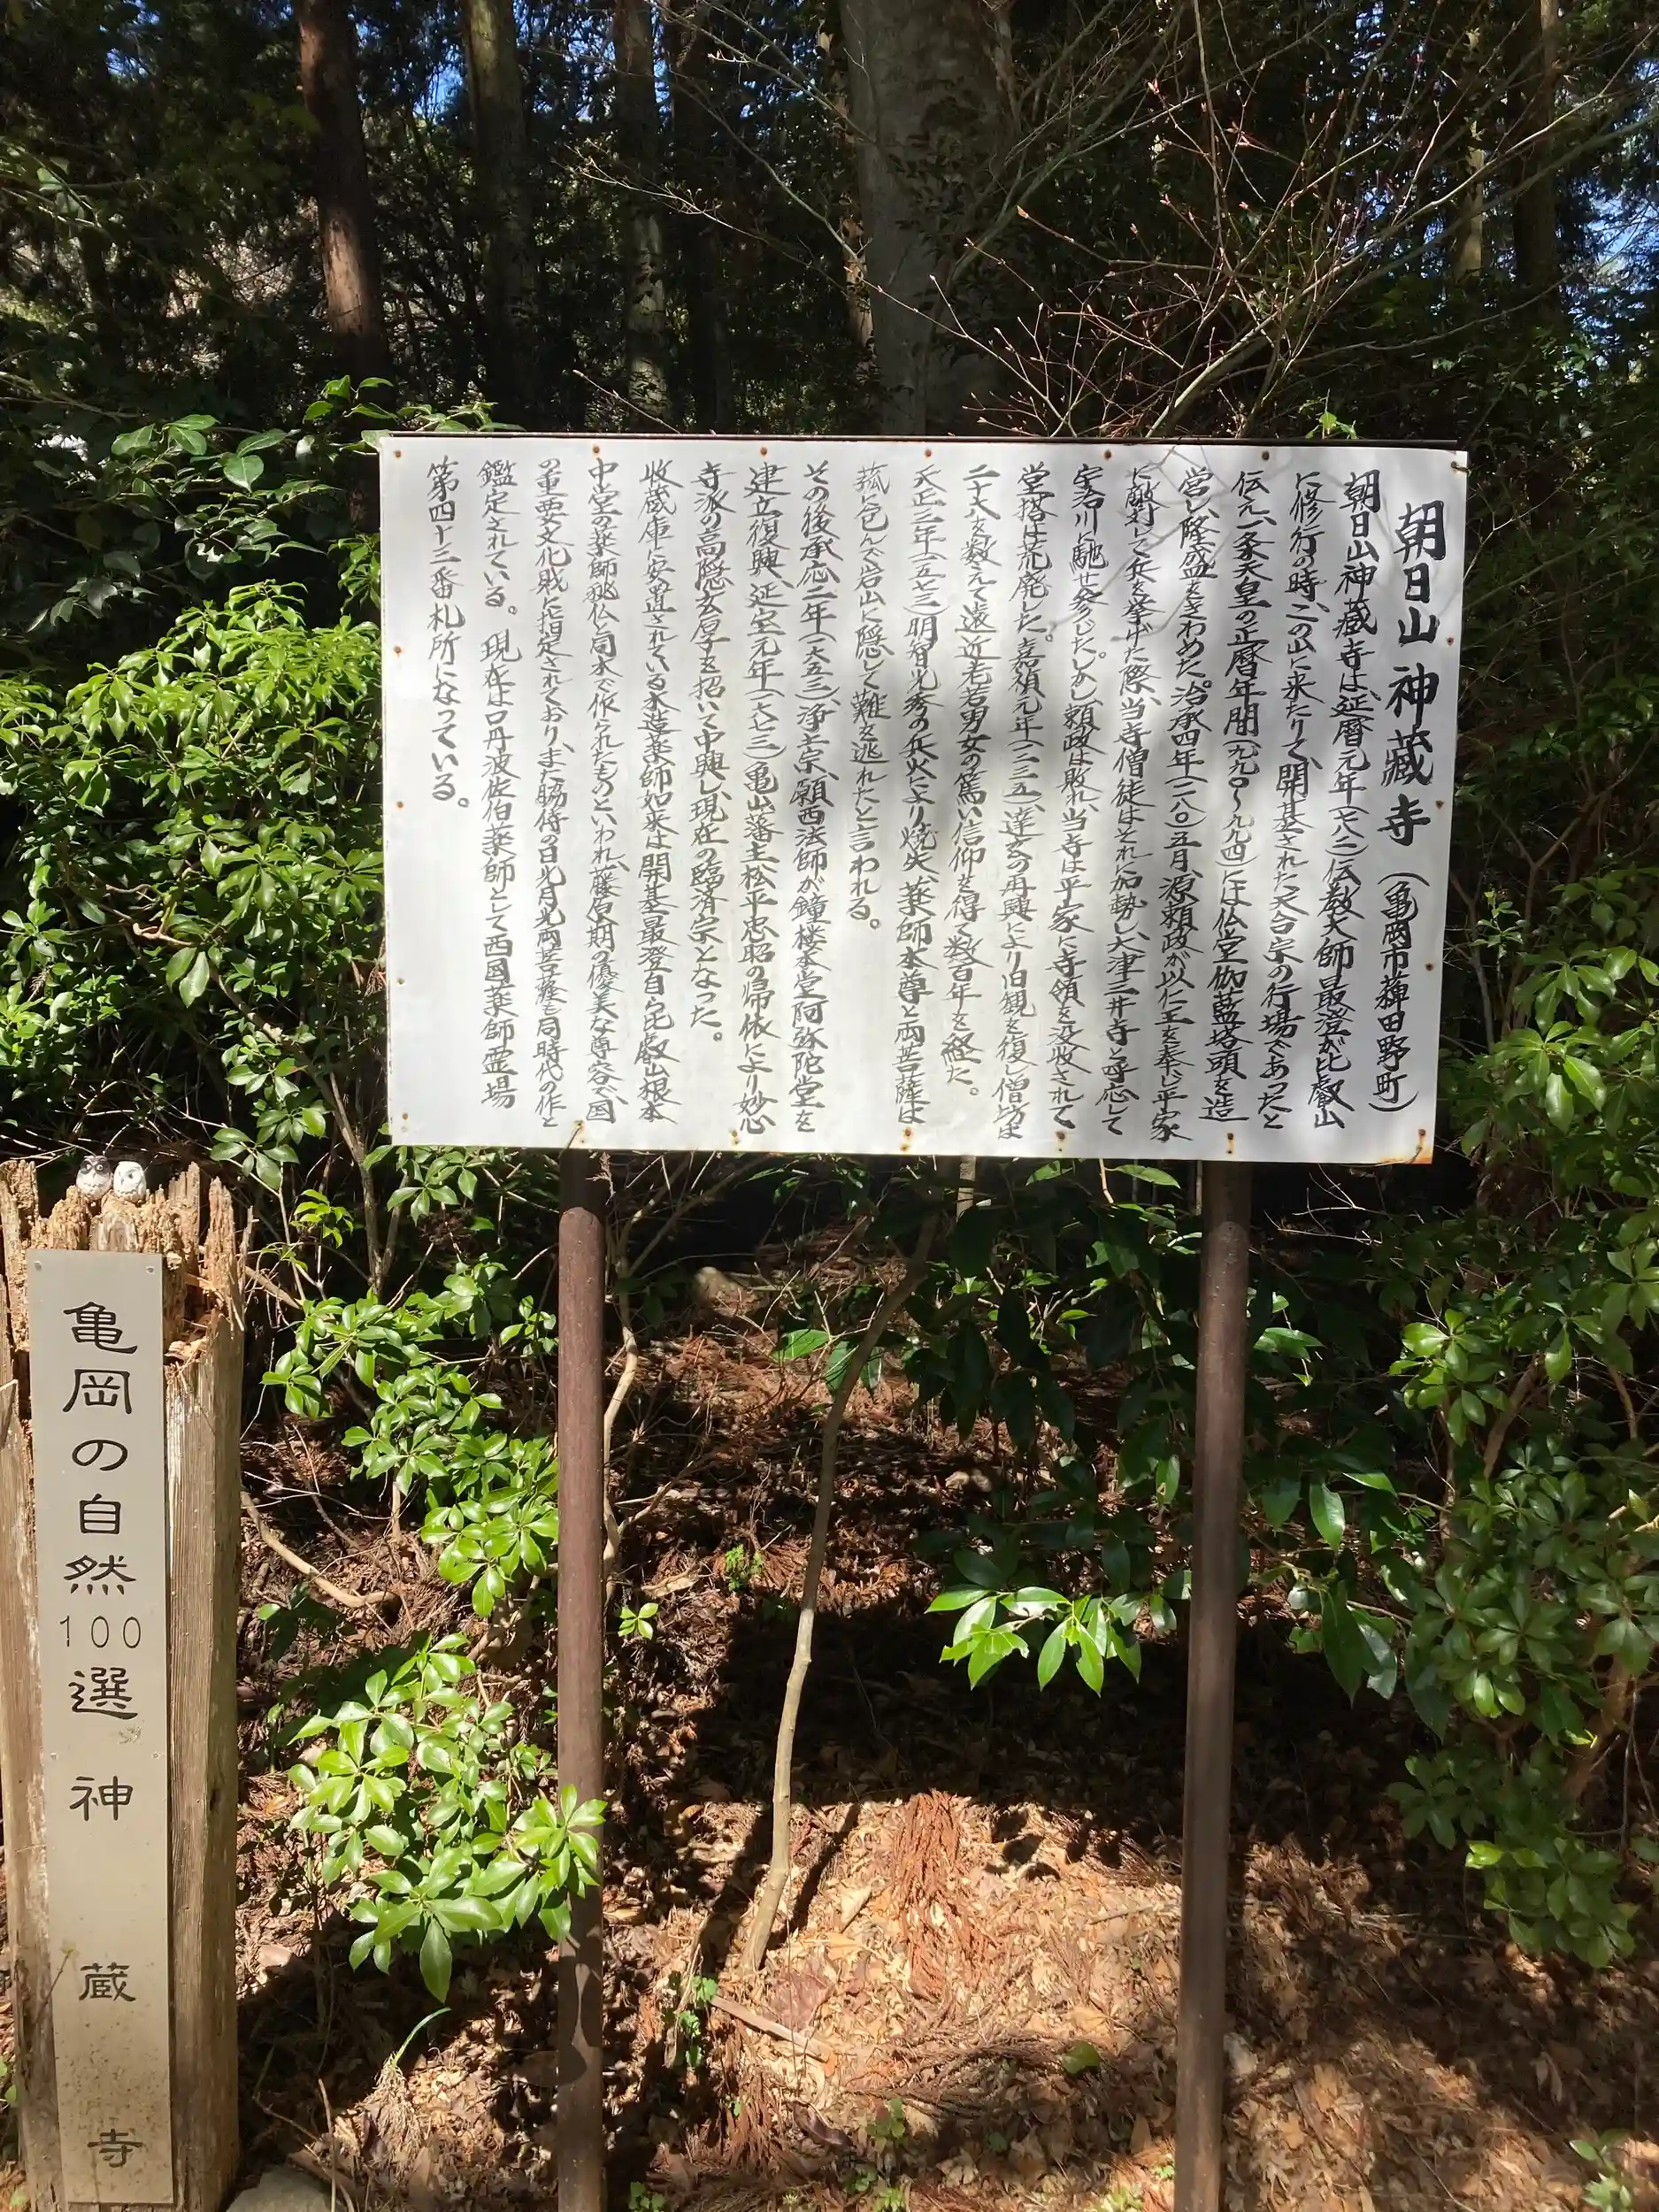 朝日山 神蔵寺 (亀岡市薭田野町)
朝日山神蔵寺は、延暦元年(七八二)伝教大師最澄が比叡山
に修行の時、この山に来たりて、開基された天台宗の行場であったと
伝え、一条天皇の正暦年間(九九〇〜九九四)には仏堂伽藍塔頭を造
営し、隆盛をきわめた。治承四年(一一八〇)五月、源頼政が以仁王を奉じ平家
に敵対して兵を挙げた際、当寺僧徒はそれに加勢し、大津三井寺と呼応して
宇治川に馳せ参じた。しかし頼政は敗れ、当寺は平家に寺領を没收されて
堂塔は荒廃した。嘉禎元年(一二三五)、達玄の再興により旧観を復し僧坊は
二十八を数えて遠近老若男女の篤い信仰を得て数百年を経た。
天正三年(一五七三)明智光秀の兵火により焼失、薬師本尊と両菩薩は
菰に包んで岩山に隠して難を逃れたと言われる。
その後承応二年(一六五三)、浄土宗、願西法師が鐘楼本堂阿弥陀堂を
建立復興、延宝元年(一六七三)亀山藩主松平忠昭の帰依により妙心
寺派の高隠玄厚を招いて中興し、現在の臨済宗となった。
收蔵庫に安置されている木造薬師如来は開基最澄自ら比叡山根本
中堂の薬師秘仏と同木で作られたものといわれ、藤原期の優美な尊容で、国
の重要文化財に指定されており、また脇侍の日光月光両菩薩も同時代の作と
鑑定されている。 現在は口丹波佐伯薬師として西国薬師霊場
第四十三番札所になっている。
亀岡の自然100選 神蔵寺